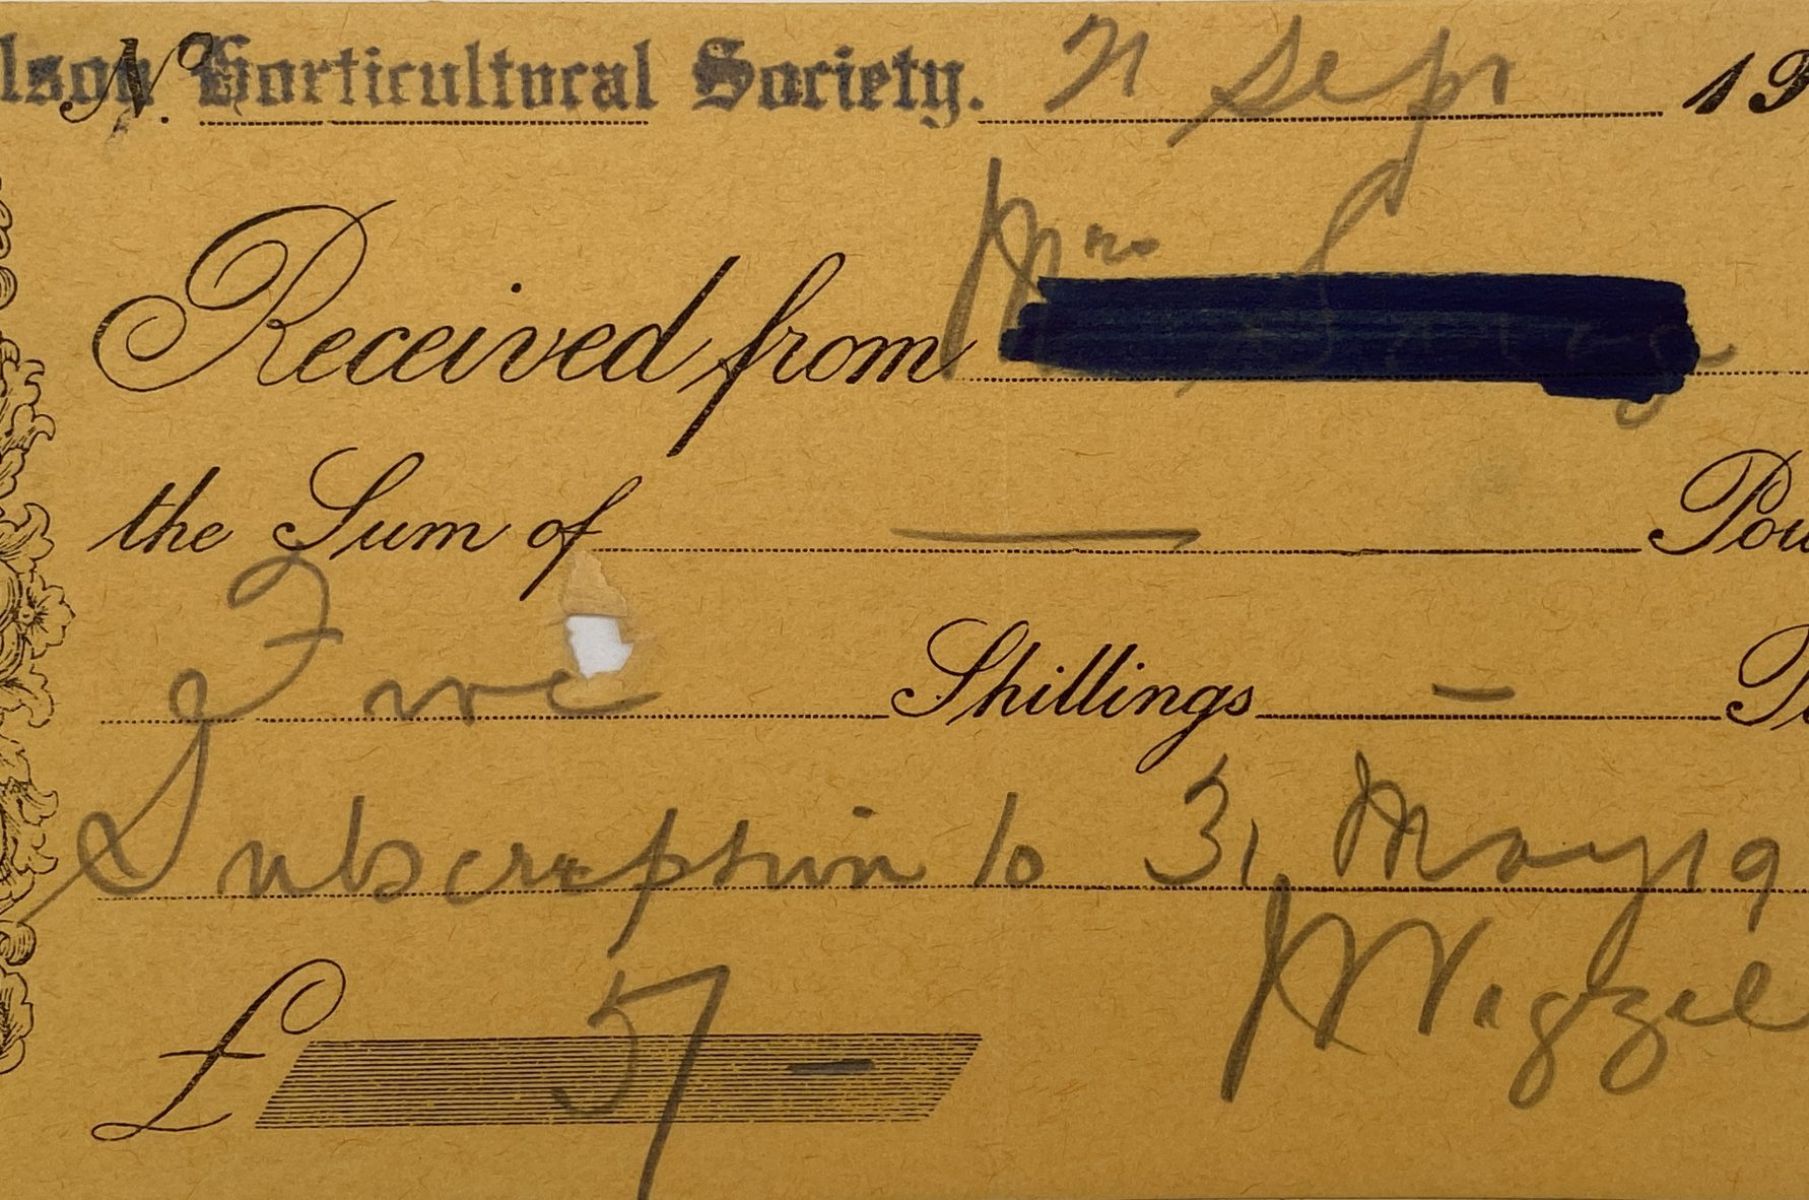 lson Horticultural Society. 21 Sepr 19
No.
Received from Mrs
the Sum of — Pou
Five Shillings - P
Subscription to 31 May 19
£ 5/-